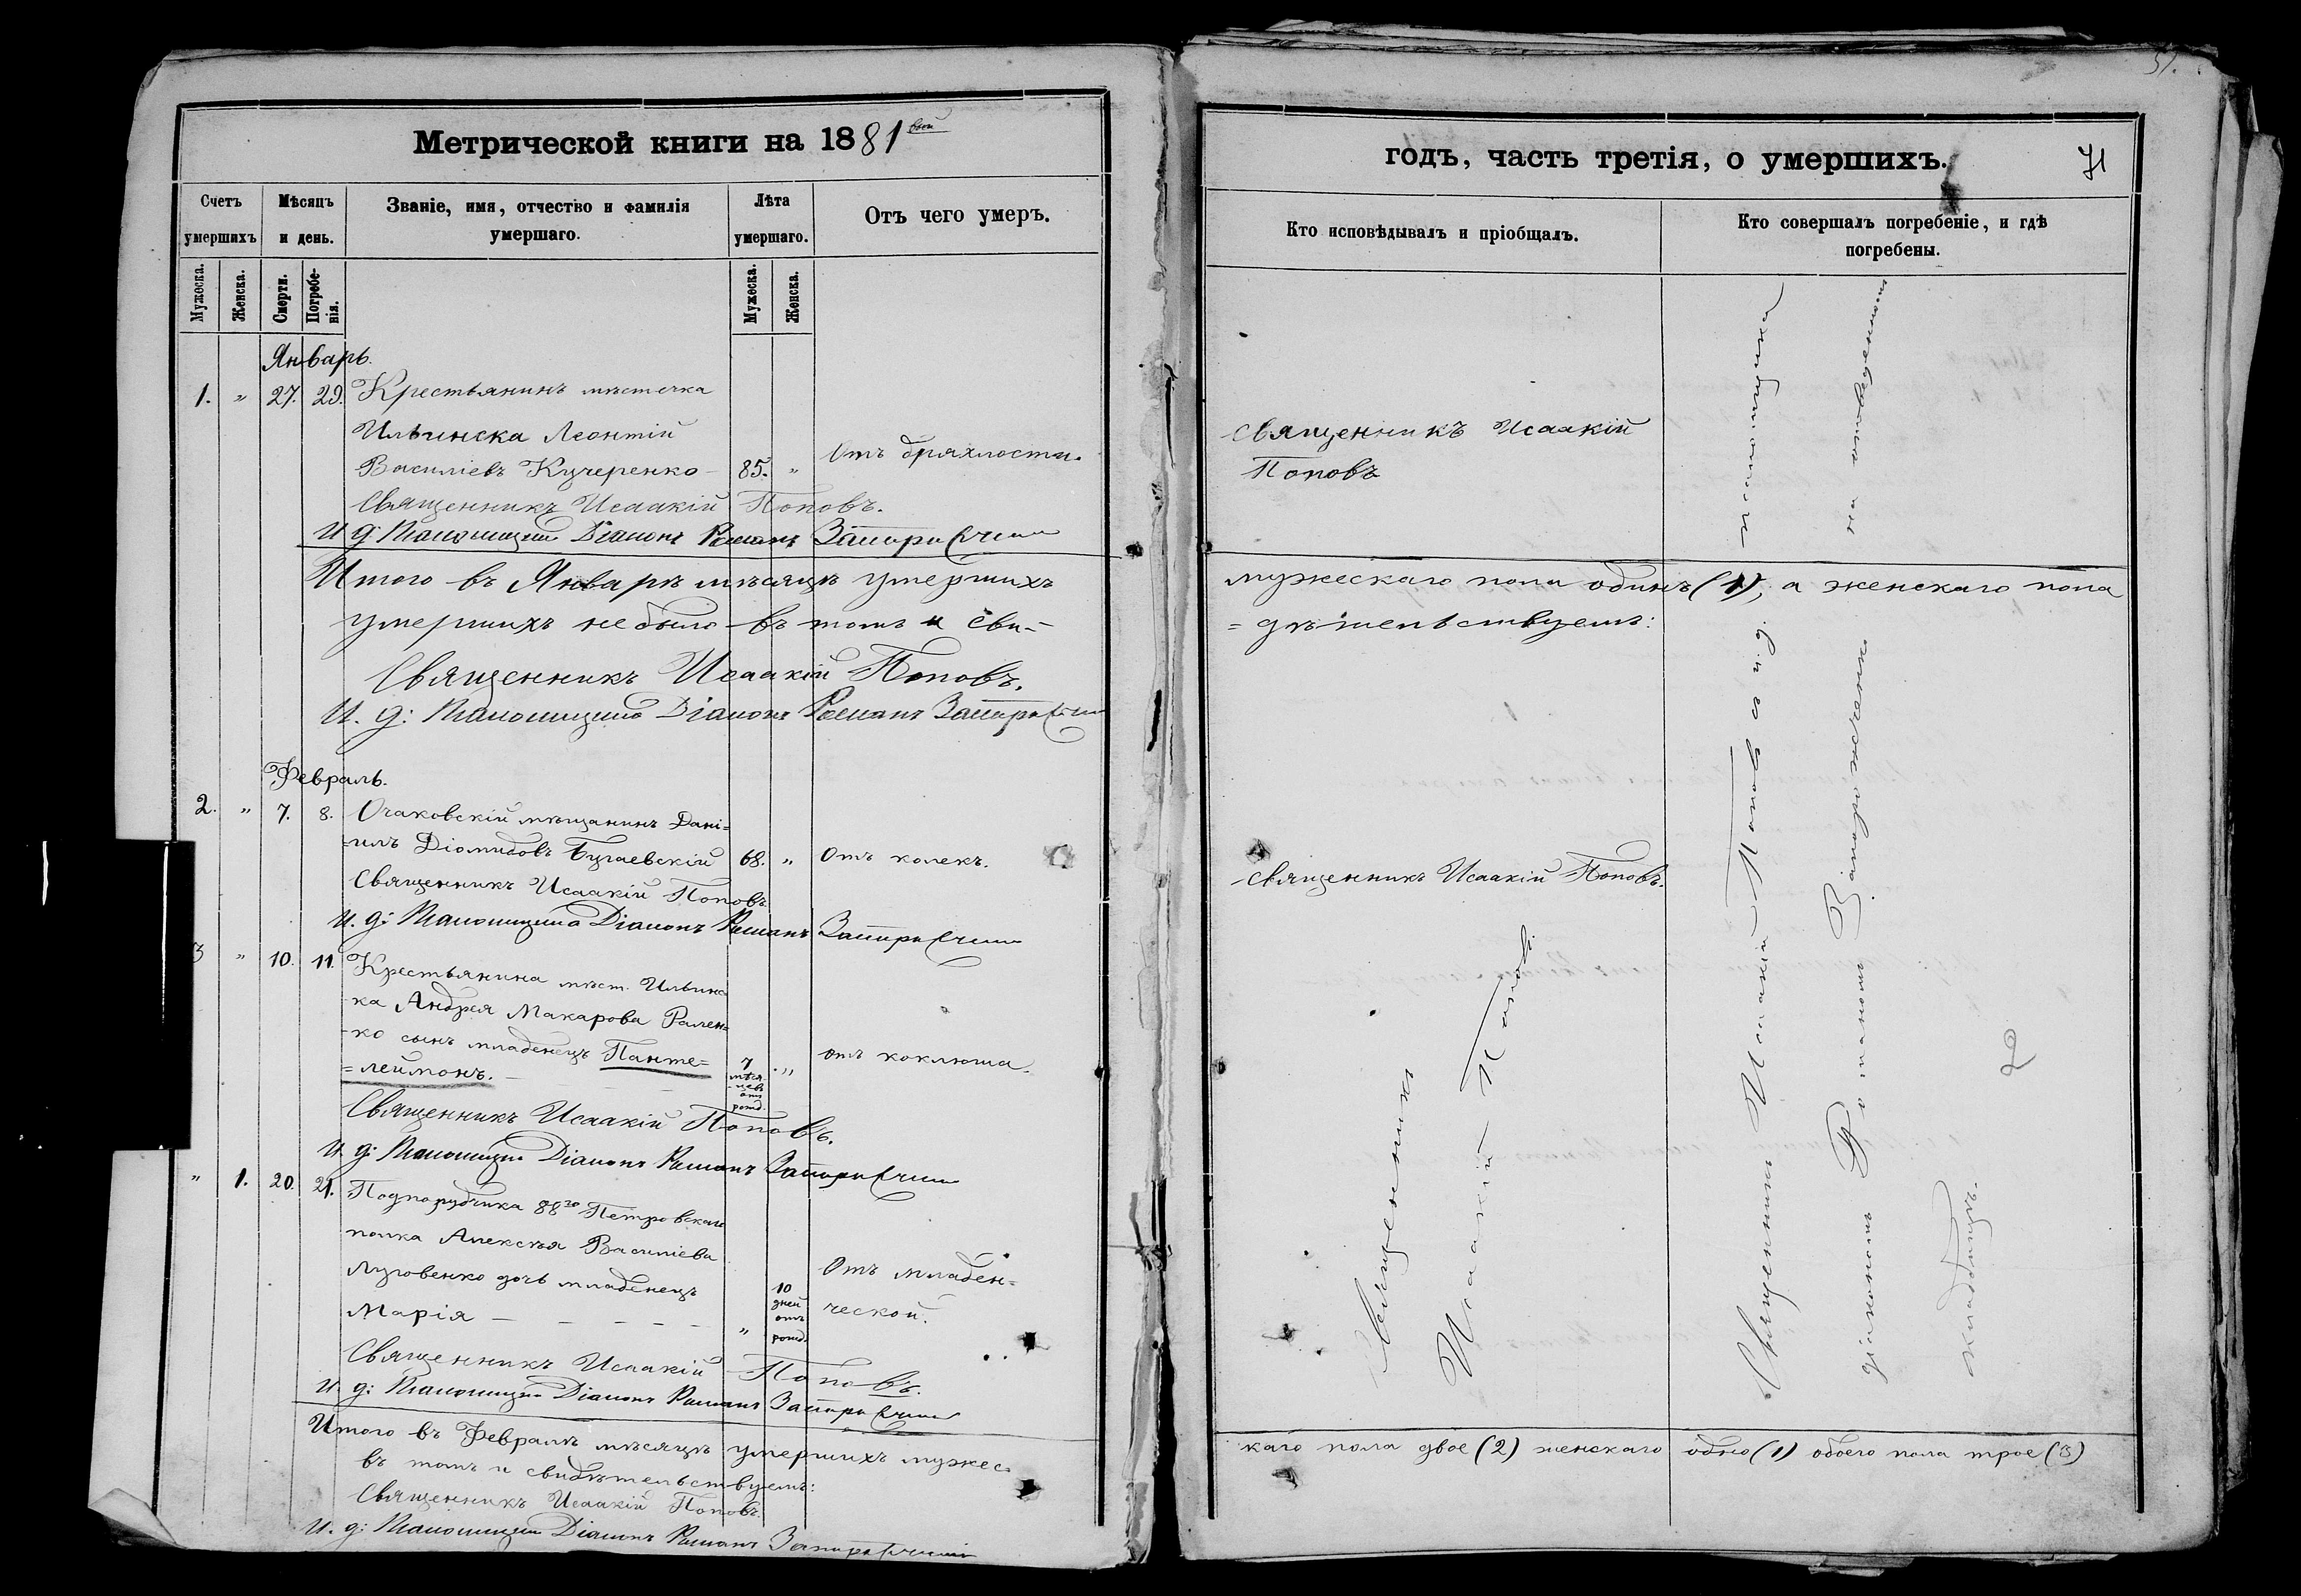 Метрической книги на 1881 вый
Счетъ умершихъ
Мѣсяцъ и день.
Званіе, имя, отчество и фамилія умершаго.
Лѣта умершаго.
Отъ чего умеръ.
Мужеска.
Женска.
Смерти.
Погребе-
нія.
Мужеска.
Женска.
Январь.
1. " 27. 29. Крестьянинъ мѣстечка
Ильинска Леонтій
Василіевъ Кучеренко - 85. " Отъ дряхлости.
Священникъ Исаакій Поповъ.
И. д: Псаломщика Діаконъ Романъ
Итого въ Январѣ мѣсяцѣ умершихъ
умершихъ не было въ томъ и сви-
Священникъ Исаакій Поповъ.
И. д: Псаломщика Діаконъ Романъ
Февраль.
2. " 7. 8. Очаковскій мѣщанинъ Дані=
=илъ Діомидовъ Бугаевскій 68. " Отъ колекъ.
Священникъ Исаакій Поповъ.
И. д: Псаломщика Діаконъ Романъ
3 " 10. 11. Крестьянина мѣст. Ильинс-
-ка Андрея Макарова Рален=
-ко сынъ младенецъ Панте=
=леймонъ. 7 мѣся-цевъ отъ рожд. " отъ коклюша.
Священникъ Исаакій Поповъ.
И. д: Псаломщика Діаконъ Романъ
" 1. 20. 21. Подпоручика 88го Петровскаго
полка Алексѣя Василіева
Луговенко дочь младенецъ
Марія - - - - - " 10 дней отъ рожд. Отъ младен=
ческой.
Священникъ Исаакій Поповъ.
И. д: Псаломщика Діаконъ Романъ
Итого въ Февралѣ мѣсяцѣ умершихъ мужес-
въ томъ и свидѣтельствуемъ:
Священникъ Исаакій Поповъ.
И. д: Псаломщика Діаконъ Романъ
51.
годъ, часть третія, о умершихъ.
71
Кто исповѣдывалъ и пріобщалъ.
Кто совершалъ погребеніе, и гдѣ
погребены.
Священникъ Исаакій
Поповъ
мужескаго пола одинъ (1), а женскаго пола
= дѣтельствуемъ:
Священникъ Исаакій Поповъ.
Священникъ
Исаакій Поповъ.
Священникъ Исаакій Поповъ съ и. д. псаломщика
діакономъ Романомъ на отведенномъ
кладбищѣ.
2
каго пола двое (2) женскаго одно (1) обоего пола трое (3)